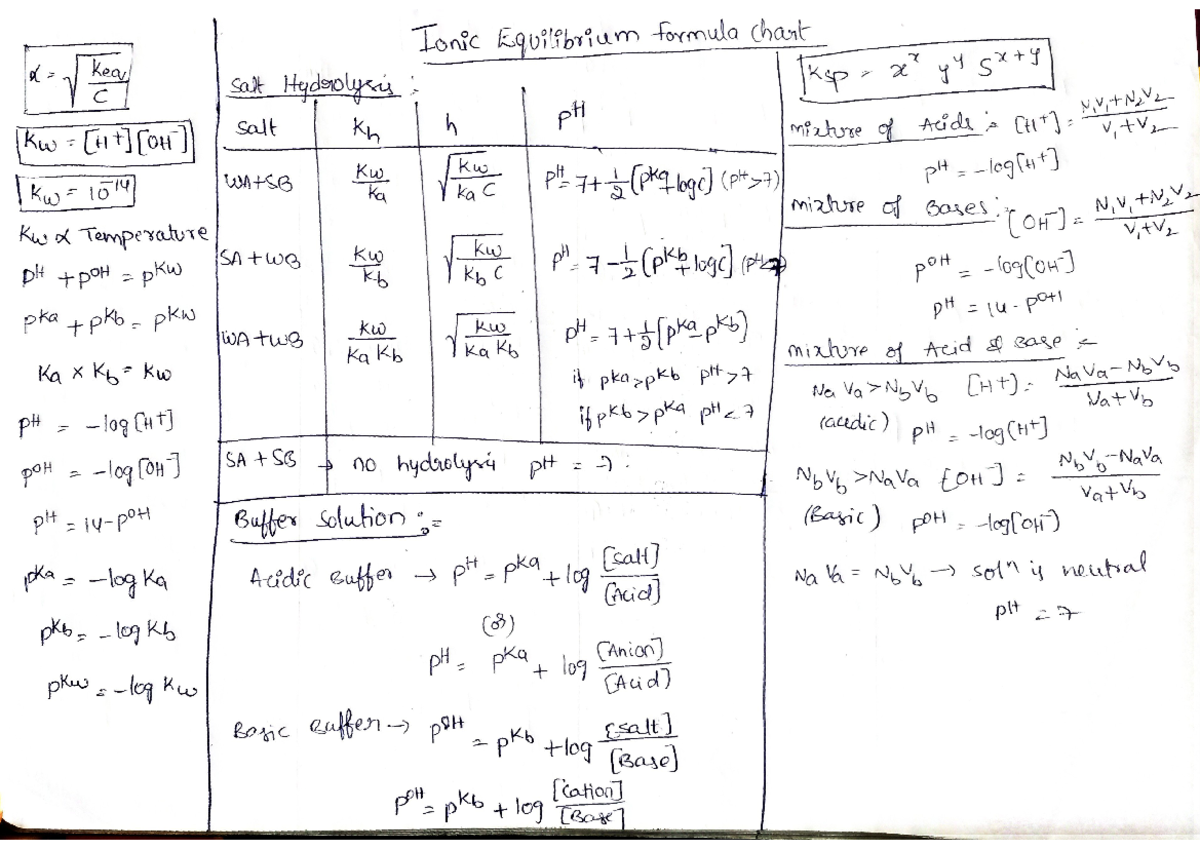 Ionic Equilibrium formula chart
α = √(Keq/C)
Kw = [H+][OH-]
Kw = 10^-14
Kw α Temperature
pH + pOH = pKw
pKa + pKb = pKw
Ka x Kb = Kw
pH = -log[H+]
pOH = -log[OH-]
pH = 14-pOH
pKa = -log Ka
pKb = -log Kb
pKw = -log Kw
Salt Hydrolysis :
Salt Kh h pH
WA+SB Kw/Ka √(Kw/Ka C) pH = 7+1/2[pKa+logc] (pH>7)
SA+WB Kw/Kb √(Kw/Kb C) pH = 7-1/2[pKb+logc] (pH<7)
WA+WB Kw/Ka Kb √(Kw/Ka Kb) pH = 7+1/2[pKa-pKb]
if pKa>pKb pH>7
if pKb>pKa pH<7
SA+SB → no hydrolysis pH = 7.
Buffer Solution :=
Acidic Buffer → pH = pKa + log [Salt]/[Acid]
(or)
pH = pKa + log [Anion]/[Acid]
Basic Buffer → pOH = pKb + log [Salt]/[Base]
pOH = pKb + log [Cation]/[Base]
Ksp = x^x y^y S^x+y
mixture of Acids :- [H+] = N1V1+N2V2/V1+V2
pH = -log[H+]
mixture of Bases :- [OH-] = N1V1+N2V2/V1+V2
pOH = -log[OH-]
pH = 14-pOH
mixture of Acid & Base :-
NaVa>NbVb [H+] = NaVa-NbVb/Va+Vb
(acedic) pH = -log[H+]
NbVb>NaVa [OH-] = NbVb-NaVa/Va+Vb
(Basic) pOH = -log[OH-]
NaVa = NbVb → soln is neutral
pH = 7